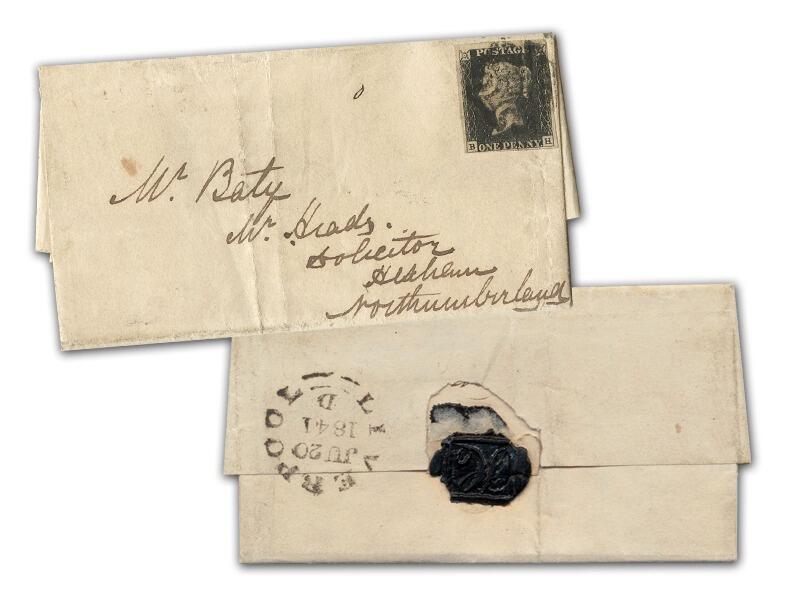 POSTAGE
B ONE PENNY H
Mr Baty
Mr Heads.
Solicitor
Hexham
Northumberland
LIVERPOOL
JU 20
1841
D